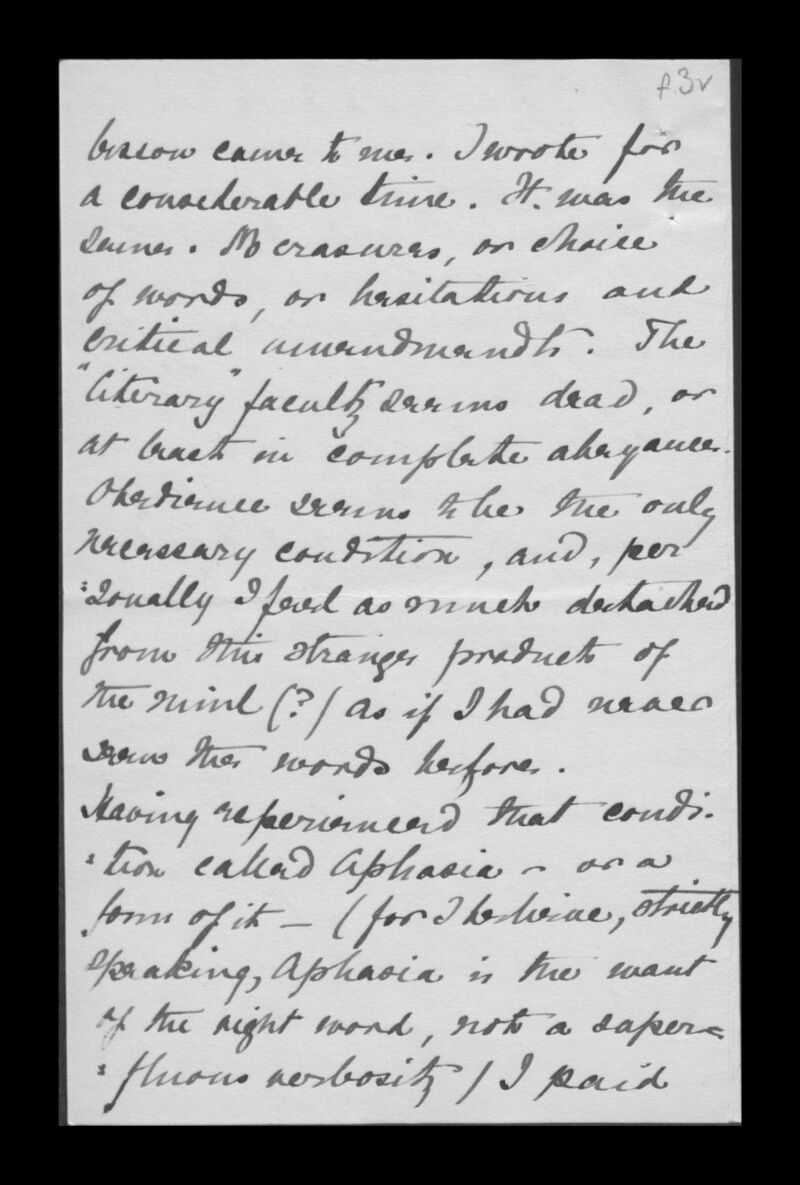 f.3v
came to me. I wrote for
a considerable time. It was the
same. No erasures, or choice
of words, or hesitations and
critical amendments. The
"literary" faculty seems dead, or
at least in complete abeyance.
Obedience seems to be the only
necessary condition, and, per
:sonally I feel as much detached
from this strange product of
the mind (?) as if I had never
seen the words before.
Having experienced that condi-
:tion called Aphasia – or a
form of it – (for I believe, strictly
speaking, Aphasia is the want
of the right word, not a super=
:fluous verbosity) I paid